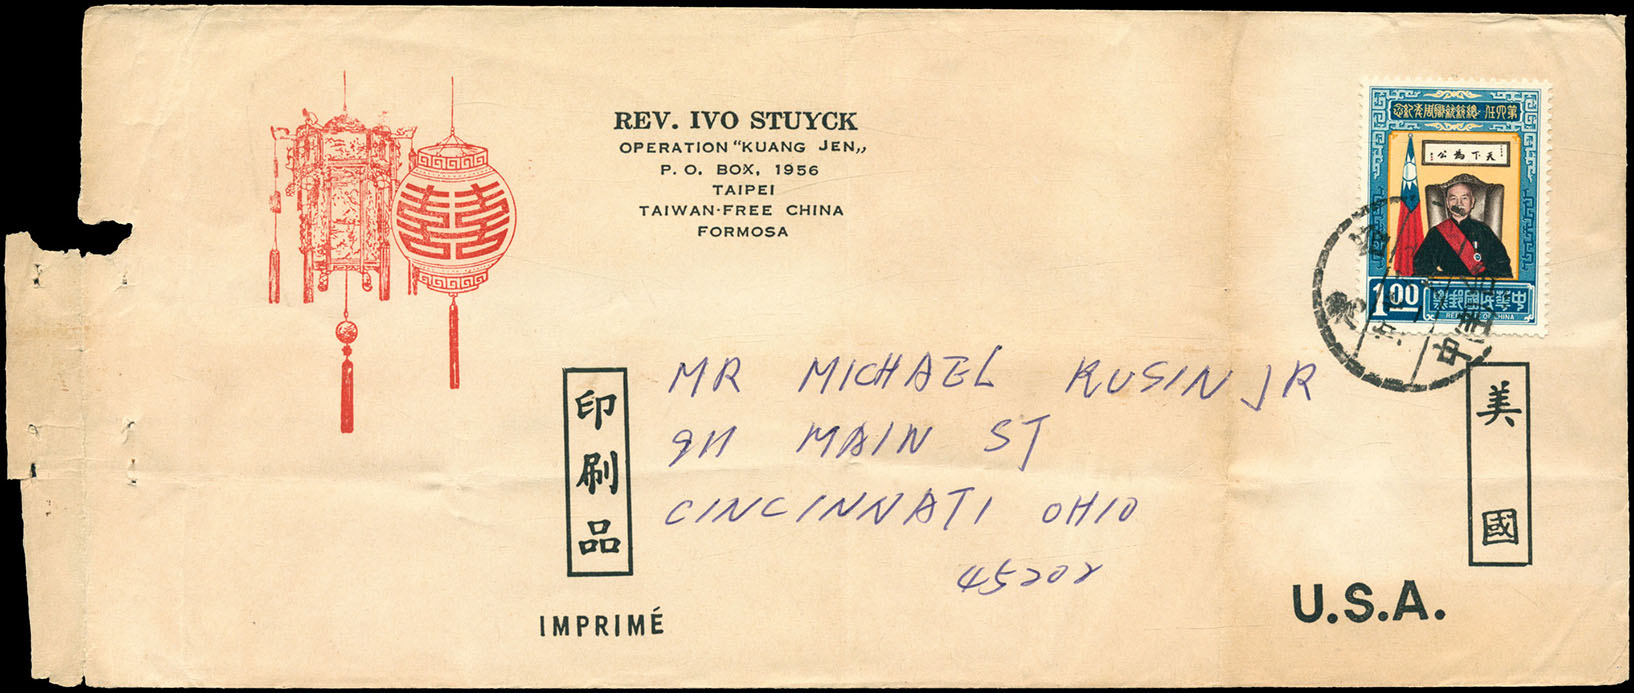 REV. IVO STUYCK
OPERATION "KUANG JEN,,
P. O. BOX, 1956
TAIPEI
TAIWAN-FREE CHINA
FORMOSA
第四任總統就職周年紀念
天下為公
1.00
中華民國郵票
REPUBLIC OF CHINA
MR MICHAEL RUSIN JR
911 MAIN ST
CINCINNATI OHIO
45202
印刷品
IMPRIMÉ
美國
U.S.A.